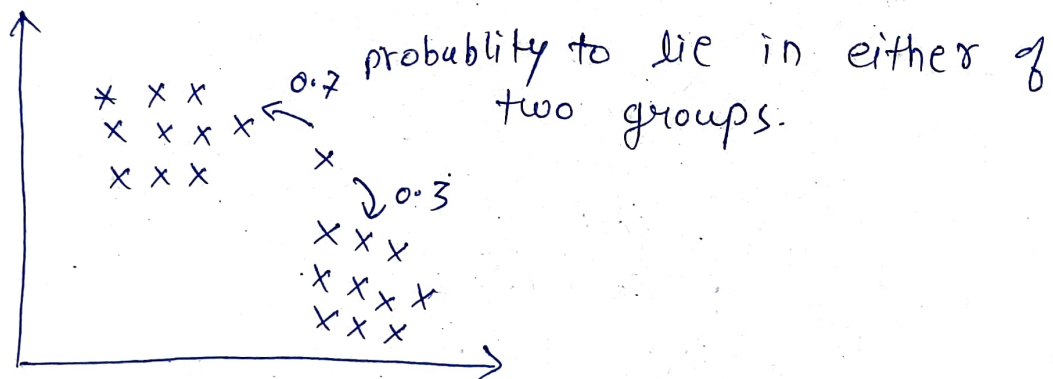 0.7 probablity to lie in either of
two groups.
0.3